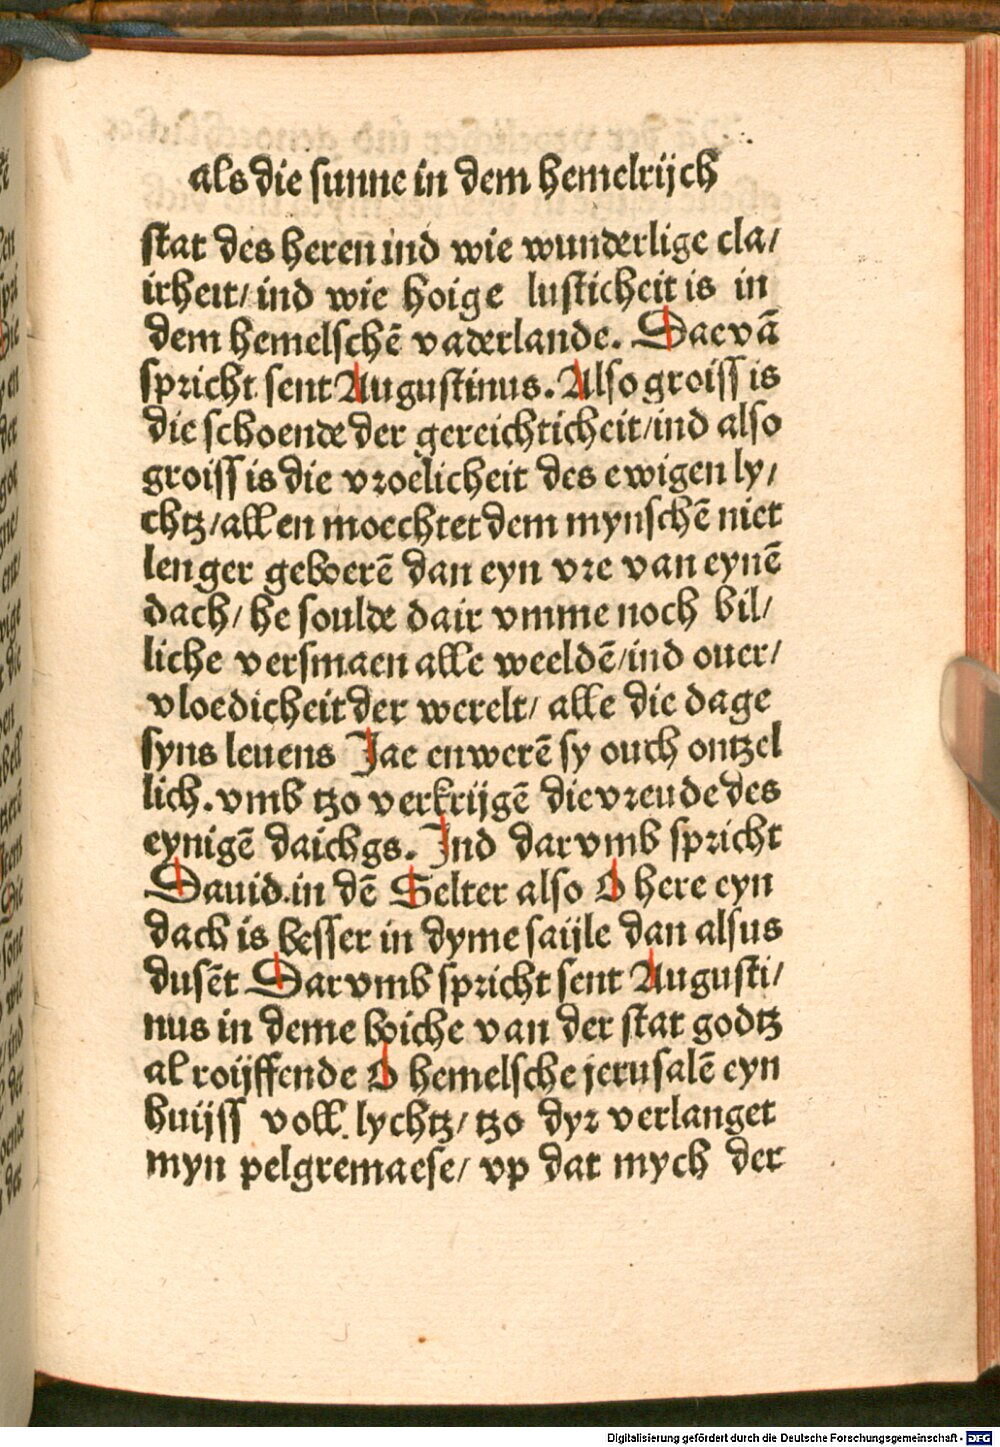 als die sunne in dem hemelrijch
stat des heren ind wie wunderlige cla/
irheit/ ind wie hoige lusticheit is in
dem hemelschē vaderlande. Daevā
spricht sent Augustinus. Also groiss is
die schoende der gereichticheit/ ind also
groiss is die vroelicheit des ewigen ly/
chtz/ all en moechtet dem mynschē niet
lenger geboerē dan eyn vre van eynē
dach/ he soulde dair vmme noch bil/
liche versmaen alle weeldē/ ind ouer/
vloedicheit der werelt/ alle die dage
syns leuens Jae enwerē sy ouch ontzel
lich. vmb tzo verkrijgē die vreude des
eynigē daichgs. Ind darvmb spricht
Dauid in dē Selter also O here eyn
dach is besser in dyme saijle dan alsus
dusēt Darvmb spricht sent Augusti/
nus in deme boiche van der stat godtz
al roijffende O hemelsche jerusalē eyn
huijss voll lychtz/ tzo dyr verlanget
myn pelgremaese/ vp dat mych der
Digitalisierung gefördert durch die Deutsche Forschungsgemeinschaft - DFG